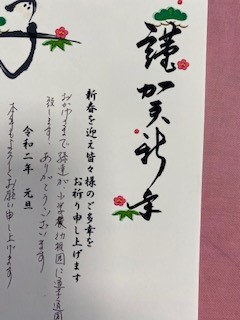 謹賀新年
新春を迎え皆々様のご多幸を
お祈り申し上げます
おかげさまで 小学 幼稚園に
致します。ありがとうございます
令和二年 元旦
本年もよろしくお願い申し上げます
子